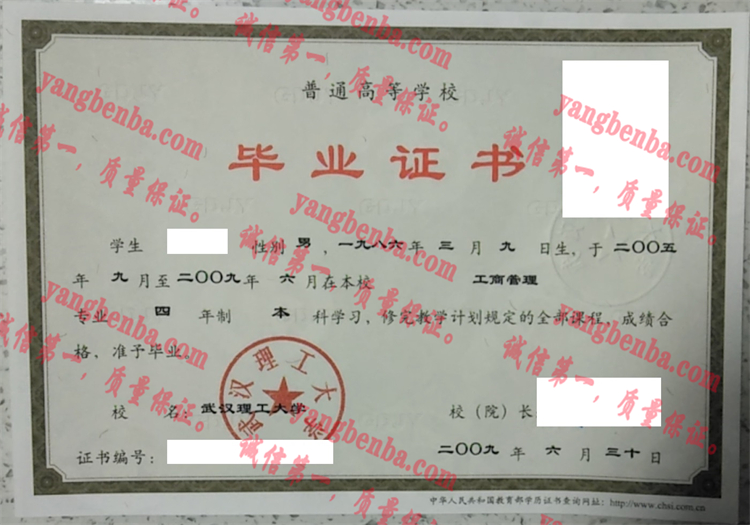 普通高等学校
毕业证书
学生 性别 男，一九八六年 三 月 九 日生，于 二〇〇五
年 九 月至 二〇〇九年 六 月在本校 工商管理
专业 四 年制 本 科学习，修完教学计划规定的全部课程，成绩合
格，准予毕业。
武汉理工大学
校 名：武汉理工大学 校（院）长：
证书编号： 二〇〇九 年 六 月 三十 日
中华人民共和国教育部学历证书查询网址：http://www.chsi.com.cn
yangbenba.com
诚信第一，质量保证。
yangbenba.com
诚信第一，质量保证。
yangbenba.com
诚信第一，质量保证。
yangbenba.com
诚信第一，质量保证。
yangbenba.com
诚信第一，质量保证。
yangbenba.com
诚信第一，质量保证。
yangbenba.com
诚信第一，质量保证。
yangbenba.com
诚信第一，质量保证。